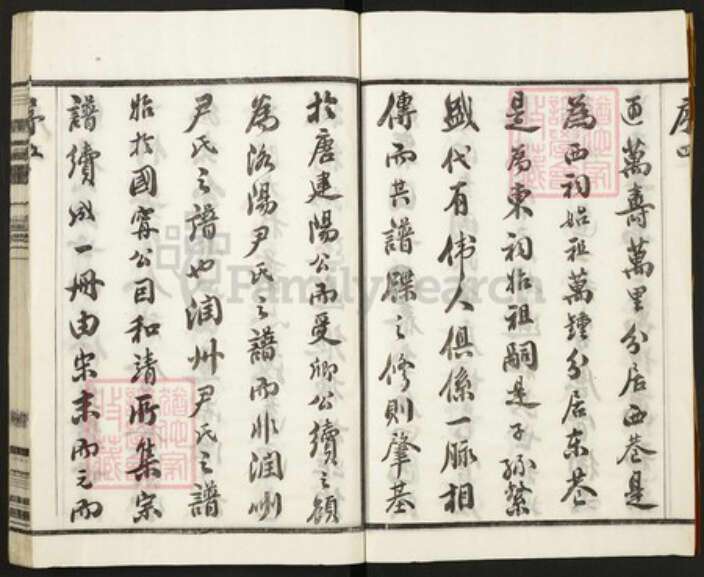 序四
迺萬壽萬里分居西巷是
為西祠始祖萬鍾分居东巷
是為東祠始祖嗣是子孫繁
盛代有偉人俱係一脉相
傳而其譜牒之修則肇基
於唐建陽公而受卿公續之顧
為洛陽尹氏之譜而非潤州
尹氏之譜也润州尹氏之譜
始於國甯公因和靖所集宗
譜續成一冊由宋末而元而
序五
FamilySearch